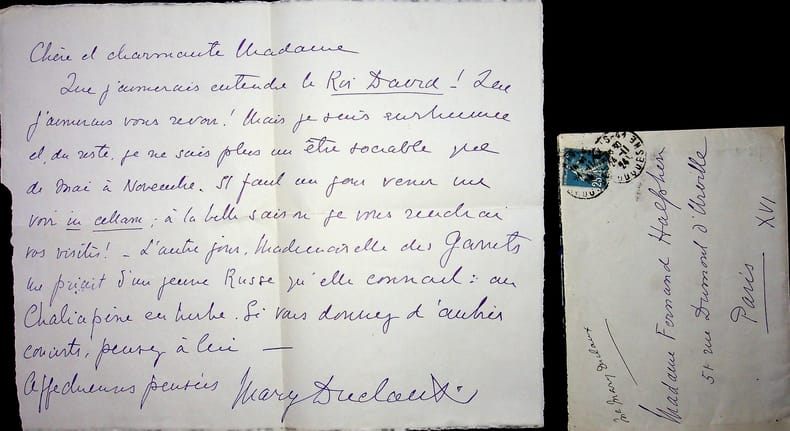 Chère et charmante Madame
Que j'aimerais entendre le Roi David ! Que
j'aimerais vous revoir ! Mais je suis enrhumée
et, du reste, je ne suis plus un être sociable que
de Mai à Novembre. Il faut un jour venir me
voir in cellam ; à la belle saison je vous rendrai
vos visites ! – L'autre jour, Mademoiselle des Garets
me parlait d'un jeune Russe qu'elle connaît : un
Chaliapine en herbe. Si vous donnez d'autres
concerts, pensez à lui —
Affectueuses pensées
Mary Duclaux
Madame Fernand Halphen
rue Dumont d'Urville
Paris XVI
Mary Duclaux
25